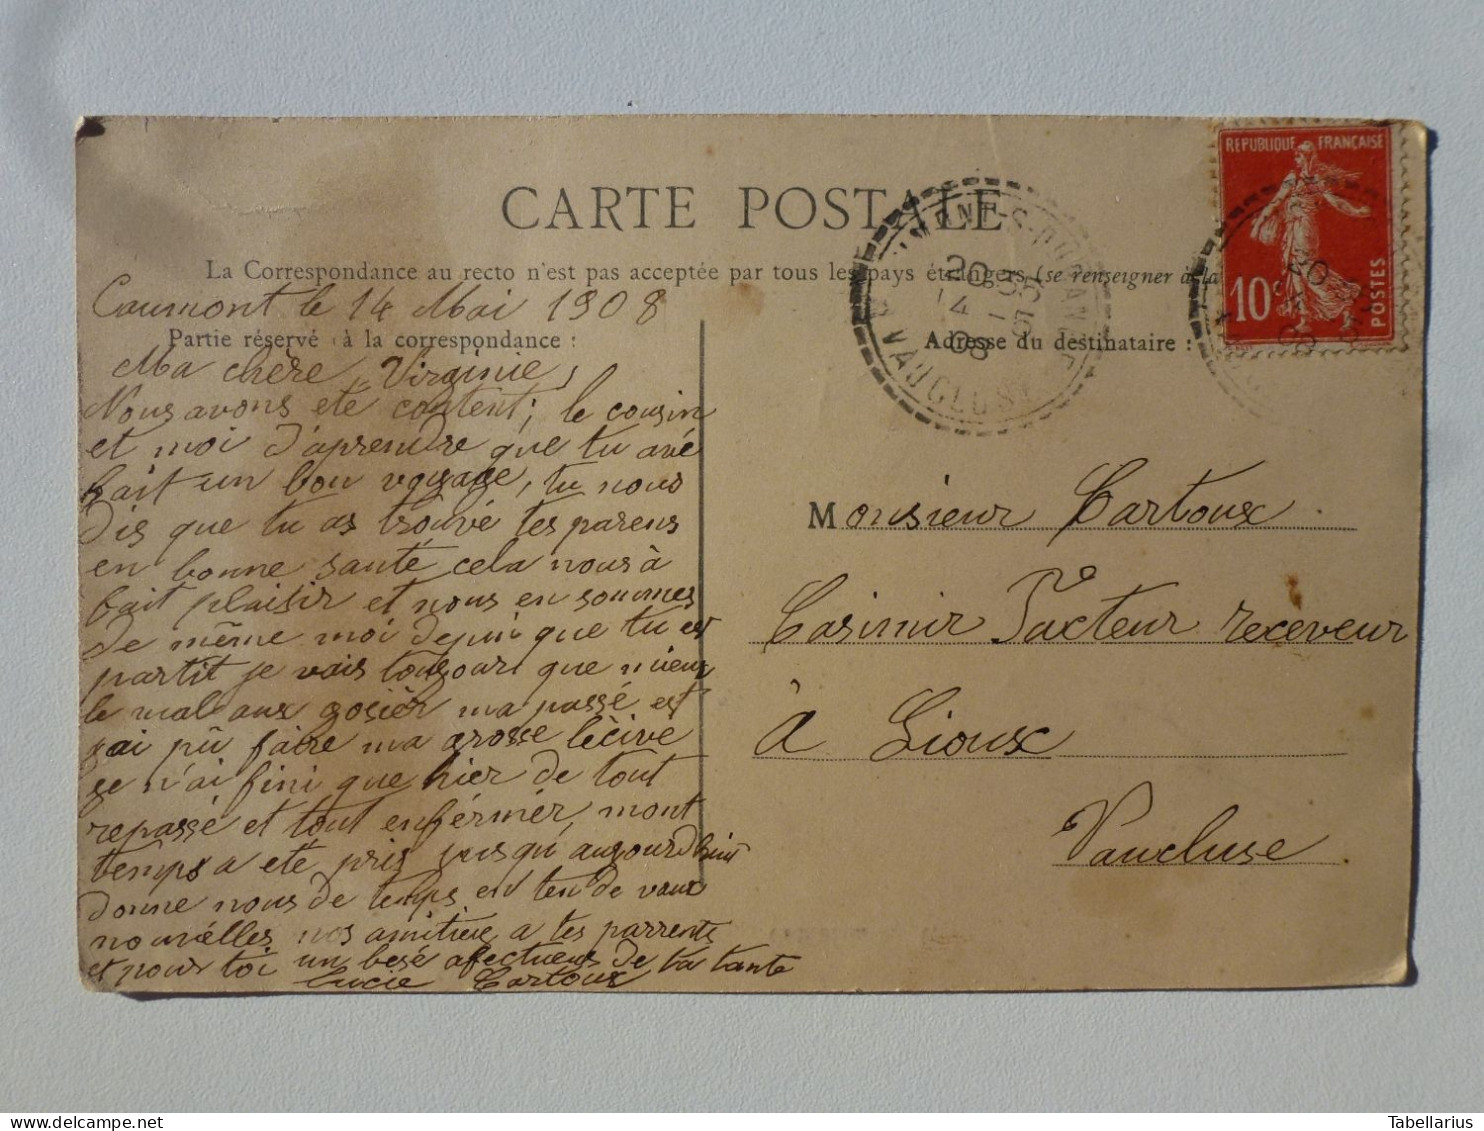 CARTE POSTALE
La Correspondance au recto n'est pas acceptée par tous les pays étrangers (se renseigner à la
Caumont le 14 Mai 1908
Partie réservé à la correspondance :
Adresse du destinataire :
Ma chère Virginie,
Nous avons eté content; le cousin
et moi d'aprendre que tu avé
fait un bon voyage, tu nous
dis que tu as trouvé tes parens
en bonne santé cela nous à
fait plaisir et nous en sommes
de même moi depui que tu est
partit je vais toujour que mieux
le mal aux gosièr ma passé est
jai pû faire ma grosse lècive
je n'ai fini que hier de tout
repassé et tout enférmér, mont
temps a eté pris jusqu'aujourdhui
donne nous de temps en ten de vaux
nouvélles, nos amitiér a tes parrents
et pour toi un besé afectueus de ta tante
Lucie Cartoux
REPUBLIQUE FRANÇAISE
10c
POSTES
MONT-S-DURANCE
20
14 5
08
VAUCLUSE
Monsieur Cartoux
Casimir Facteur receveur
à Lioux
Vaucluse
Tabellarius